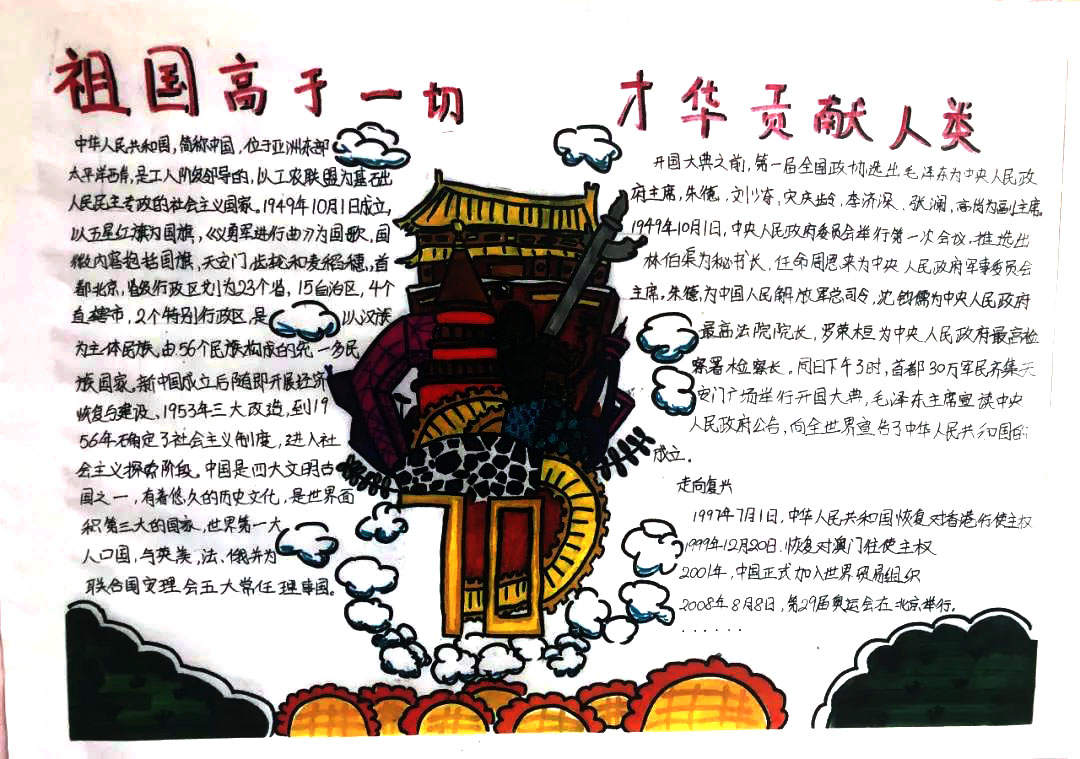 祖国高于一切
才华贡献人类
中华人民共和国,简称中国,位于亚洲东部
太平洋西岸,是工人阶级领导的,以工农联盟为基础
人民民主专政的社会主义国家。1949年10月1日成立,
以五星红旗为国旗,《义勇军进行曲》为国歌,国
徽内容包括国旗,天安门,齿轮和麦稻穗,首
都北京,省级行政区划为23个省,15自治区,4个
直辖市,2个特别行政区,是 以汉族
为主体民族,由56个民族构成的统一多民
族国家。新中国成立后随即开展经济
恢复与建设,1953年三大改造,到19
56年确定了社会主义制度,进入社
会主义探索阶段。中国是四大文明古
国之一,有着悠久的历史文化,是世界面
积第三大的国家,世界第一大
人口国,与英美,法、俄并为
联合国安理会五大常任理事国。
开国大典之前,第一届全国政协选出毛泽东为中央人民政
府主席,朱德,刘少奇,宋庆龄,李济深、张澜,高岗为副主席。
1949年10月1日,中央人民政府委员会举行第一次会议,推选出
林伯渠为秘书长,任命周恩来为中央人民政府军事委员会
主席。朱德,为中国人民解放军总司令,沈钧儒为中央人民政府
最高法院院长,罗荣桓为中央人民政府最高检
察署检察长。同日下午3时,首都30万军民齐集天
安门广场举行开国大典,毛泽东主席宣读中央
人民政府公告,向全世界宣告了中华人民共和国的
成立。
走向复兴
1997年7月1日,中华人民共和国恢复对香港行使主权
1999年12月20日,恢复对澳门行使主权
2001年,中国正式加入世界贸易组织
2008年8月8日,第29届奥运会在北京举行。
······
70